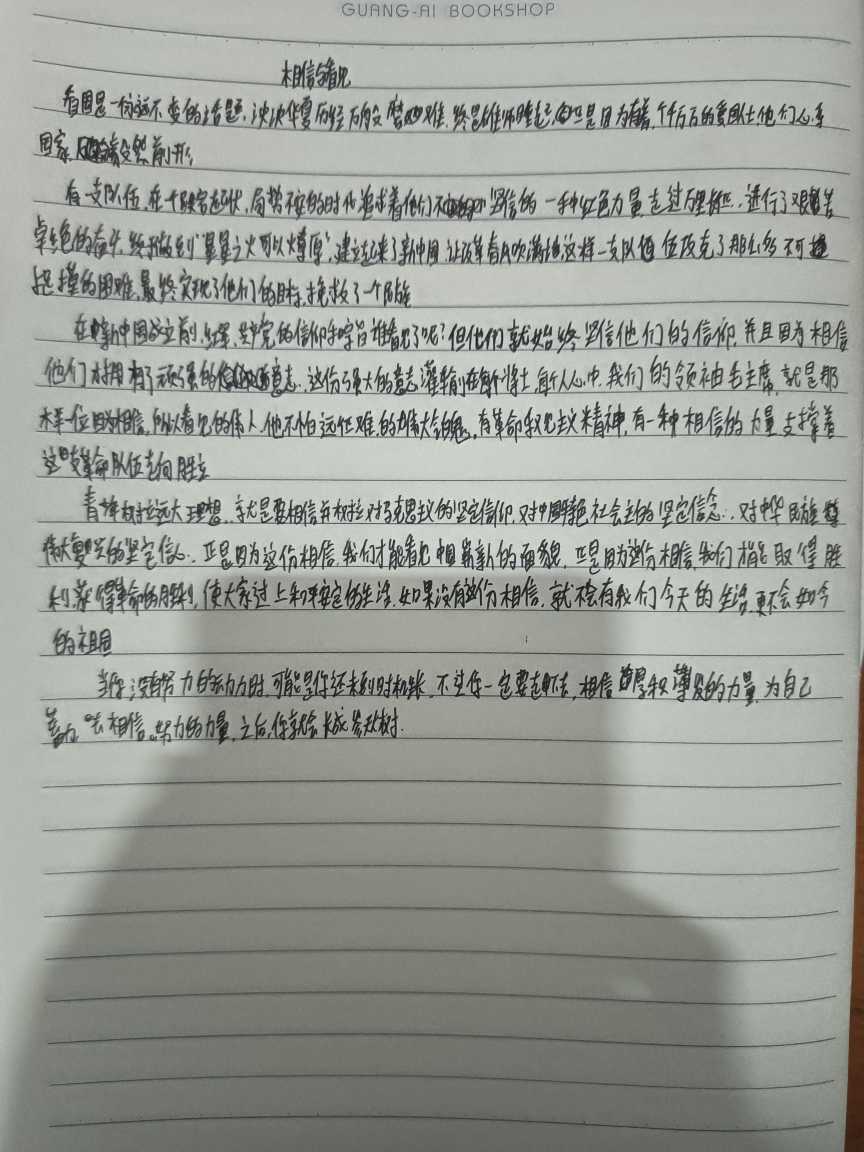 GUANG-AI BOOKSHOP
相信与看见
看国是一句永不变的话题，泱泱华夏历经万般磨难，终是雄师醒起，正是因为有着，千千万万的爱国人士他们心系
国家，奋然前行
有一支队伍，在一个跌宕起伏，局势不安的时代追求着他们坚信的一种红色力量走过万里长征，进行了艰苦
卓绝的奋斗，终于做到"星星之火可以燎原"，建立起来了新中国，让改革春风吹满地这样一支队伍攻克了那么多不可
撑的困难，最终实现了他们的目标，挽救了一个民族
在新中国成立前，红军，共产党的信仰和宗旨谁看见了呢？但他们就始终坚信他们的信仰，并且因为相信
他们才拥有了顽强的意志，这份强大的意志灌输在每个将士，每个人心中，我们的领袖毛主席，就是那
样一位因为相信，所以看见的伟人，他不怕远征难，的伟大气魄，有革命乐观主义精神，有一种相信的力量支撑着
这支革命队伍走向胜利
青年树立远大理想，就是要相信并树立对马克思主义的坚定信仰，对中国特色社会主义的坚定信念，对中华民族
伟大复兴的坚定信心，正是因为这份相信，我们才能看见中国崭新的面貌，正是因为这份相信，我们才能取得胜
利，获得革命的胜利，使大家过上和平安定的生活，如果没有这份相信，就不会有我们今天的生活，更不会如今
的祖国
当你没有努力的动力时，可能是你还未到时机，不过你一定要走下去，相信厚积薄发的力量，为自己
去相信努力的力量，之后，你就会长成参天大树.